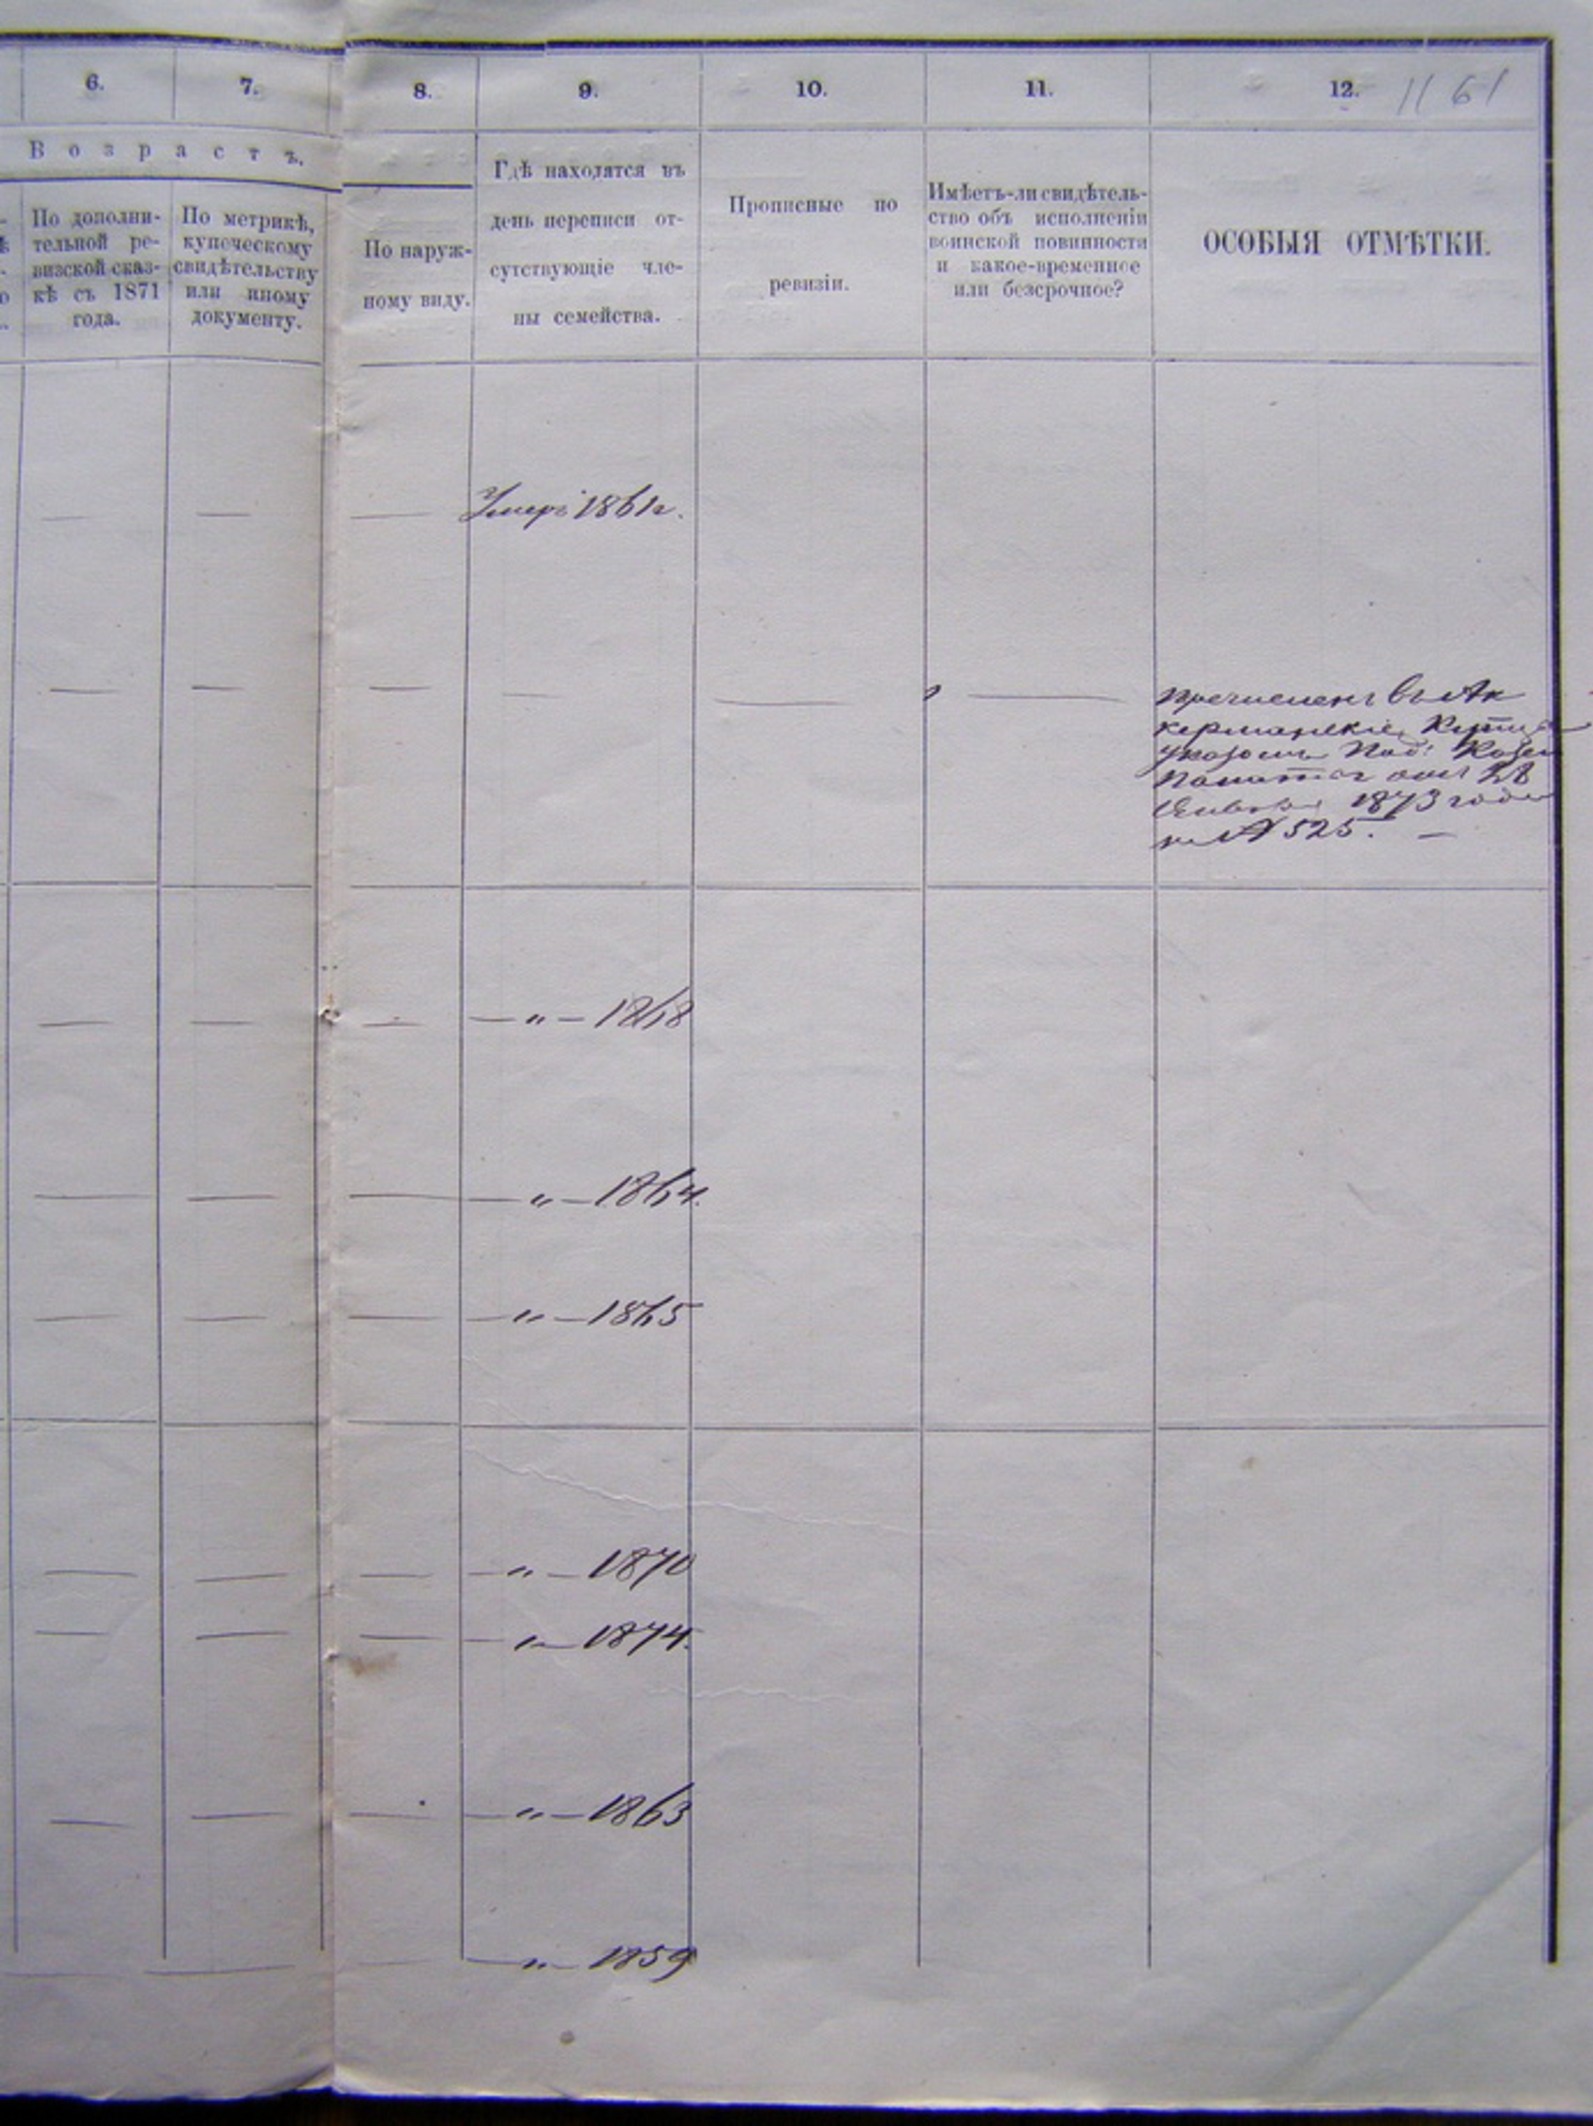 6.
7.
8.
9.
10.
11.
12.
1161
Возрастъ.
По дополни-
тельной ре-
визской сказ-
кѣ съ 1871
года.
По метрикѣ,
купеческому
свидѣтельству
или иному
документу.
По наруж-
ному виду.
Гдѣ находятся въ
день переписи от-
сутствующіе чле-
ны семейства.
Прописные по
ревизіи.
Имѣетъ-ли свидѣтель-
ство объ исполненіи
воинской повинности
и какое-временное
или безсрочное?
ОСОБЫЯ ОТМѢТКИ.
Умеръ 1861 г.
Пречисленъ въ Ак
керманскіе Купцы
указомъ Под: Казен
Палаты отъ
Января 1873 года
за № 525. —
— „ — 1868
— „ — 1864.
— „ — 1865
— „ — 1870
— „ — 1874.
— „ — 1863
— „ — 1859